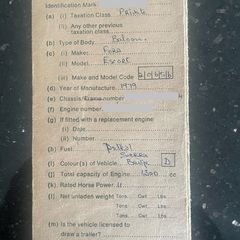 Identification Mark
(a) (i) Taxation Class Private
(ii) Any other previous
taxation class
(b) Type of Body Saloon
(c) (i) Make Ford
(ii) Model Escort
(iii) Make and Model Code
(d) Year of Manufacture 1979
(e) Chassis/Frame number
(f) Engine number
(g) If fitted with a replacement engine
(i) Date
(ii) Number
(h) Fuel Petrol
(i) Colour(s) of Vehicle Beige D
(j) Total capacity of Engine 1300 cc
(k) Rated Horse Power
(l) Net unladen weight Tons Cwt Lbs
Tons Cwt Lbs
Tons Cwt Lbs
(m) Is the vehicle licensed to
draw a trailer?